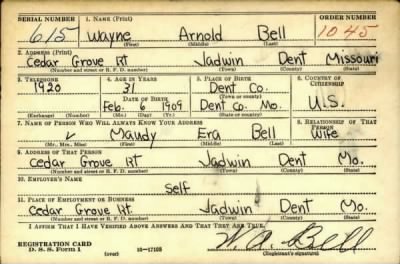 SERIAL NUMBER 1. NAME (Print) ORDER NUMBER
615 Wayne Arnold Bell 1045
(First) (Middle) (Last)
2. ADDRESS (Print)
Cedar Grove Rt Jadwin Dent Missouri
(Number and street or R. F. D. number) (Town) (County) (State)
3. TELEPHONE 4. AGE IN YEARS 5. PLACE OF BIRTH 6. COUNTRY OF CITIZENSHIP
1920 31 Dent Co.
(Town or county)
DATE OF BIRTH
Feb. 6 1909 Dent Co. Mo. U.S.
(Exchange) (Number) (Mo.) (Day) (Yr.) (State or country)
7. NAME OF PERSON WHO WILL ALWAYS KNOW YOUR ADDRESS 8. RELATIONSHIP OF THAT PERSON
Maudy Era Bell Wife
(Mr., Mrs., Miss) (First) (Middle) (Last)
9. ADDRESS OF THAT PERSON
Cedar Grove Rt Jadwin Dent Mo.
(Number and street or R. F. D. number) (Town) (County) (State)
10. EMPLOYER'S NAME
Self
11. PLACE OF EMPLOYMENT OR BUSINESS
Cedar Grove Rt. Jadwin Dent Mo.
(Number and street or R. F. D. number) (Town) (County) (State)
I AFFIRM THAT I HAVE VERIFIED ABOVE ANSWERS AND THAT THEY ARE TRUE.
REGISTRATION CARD
D. S. S. Form 1 (over) 16-17105 W. A. Bell
(Registrant's signature)